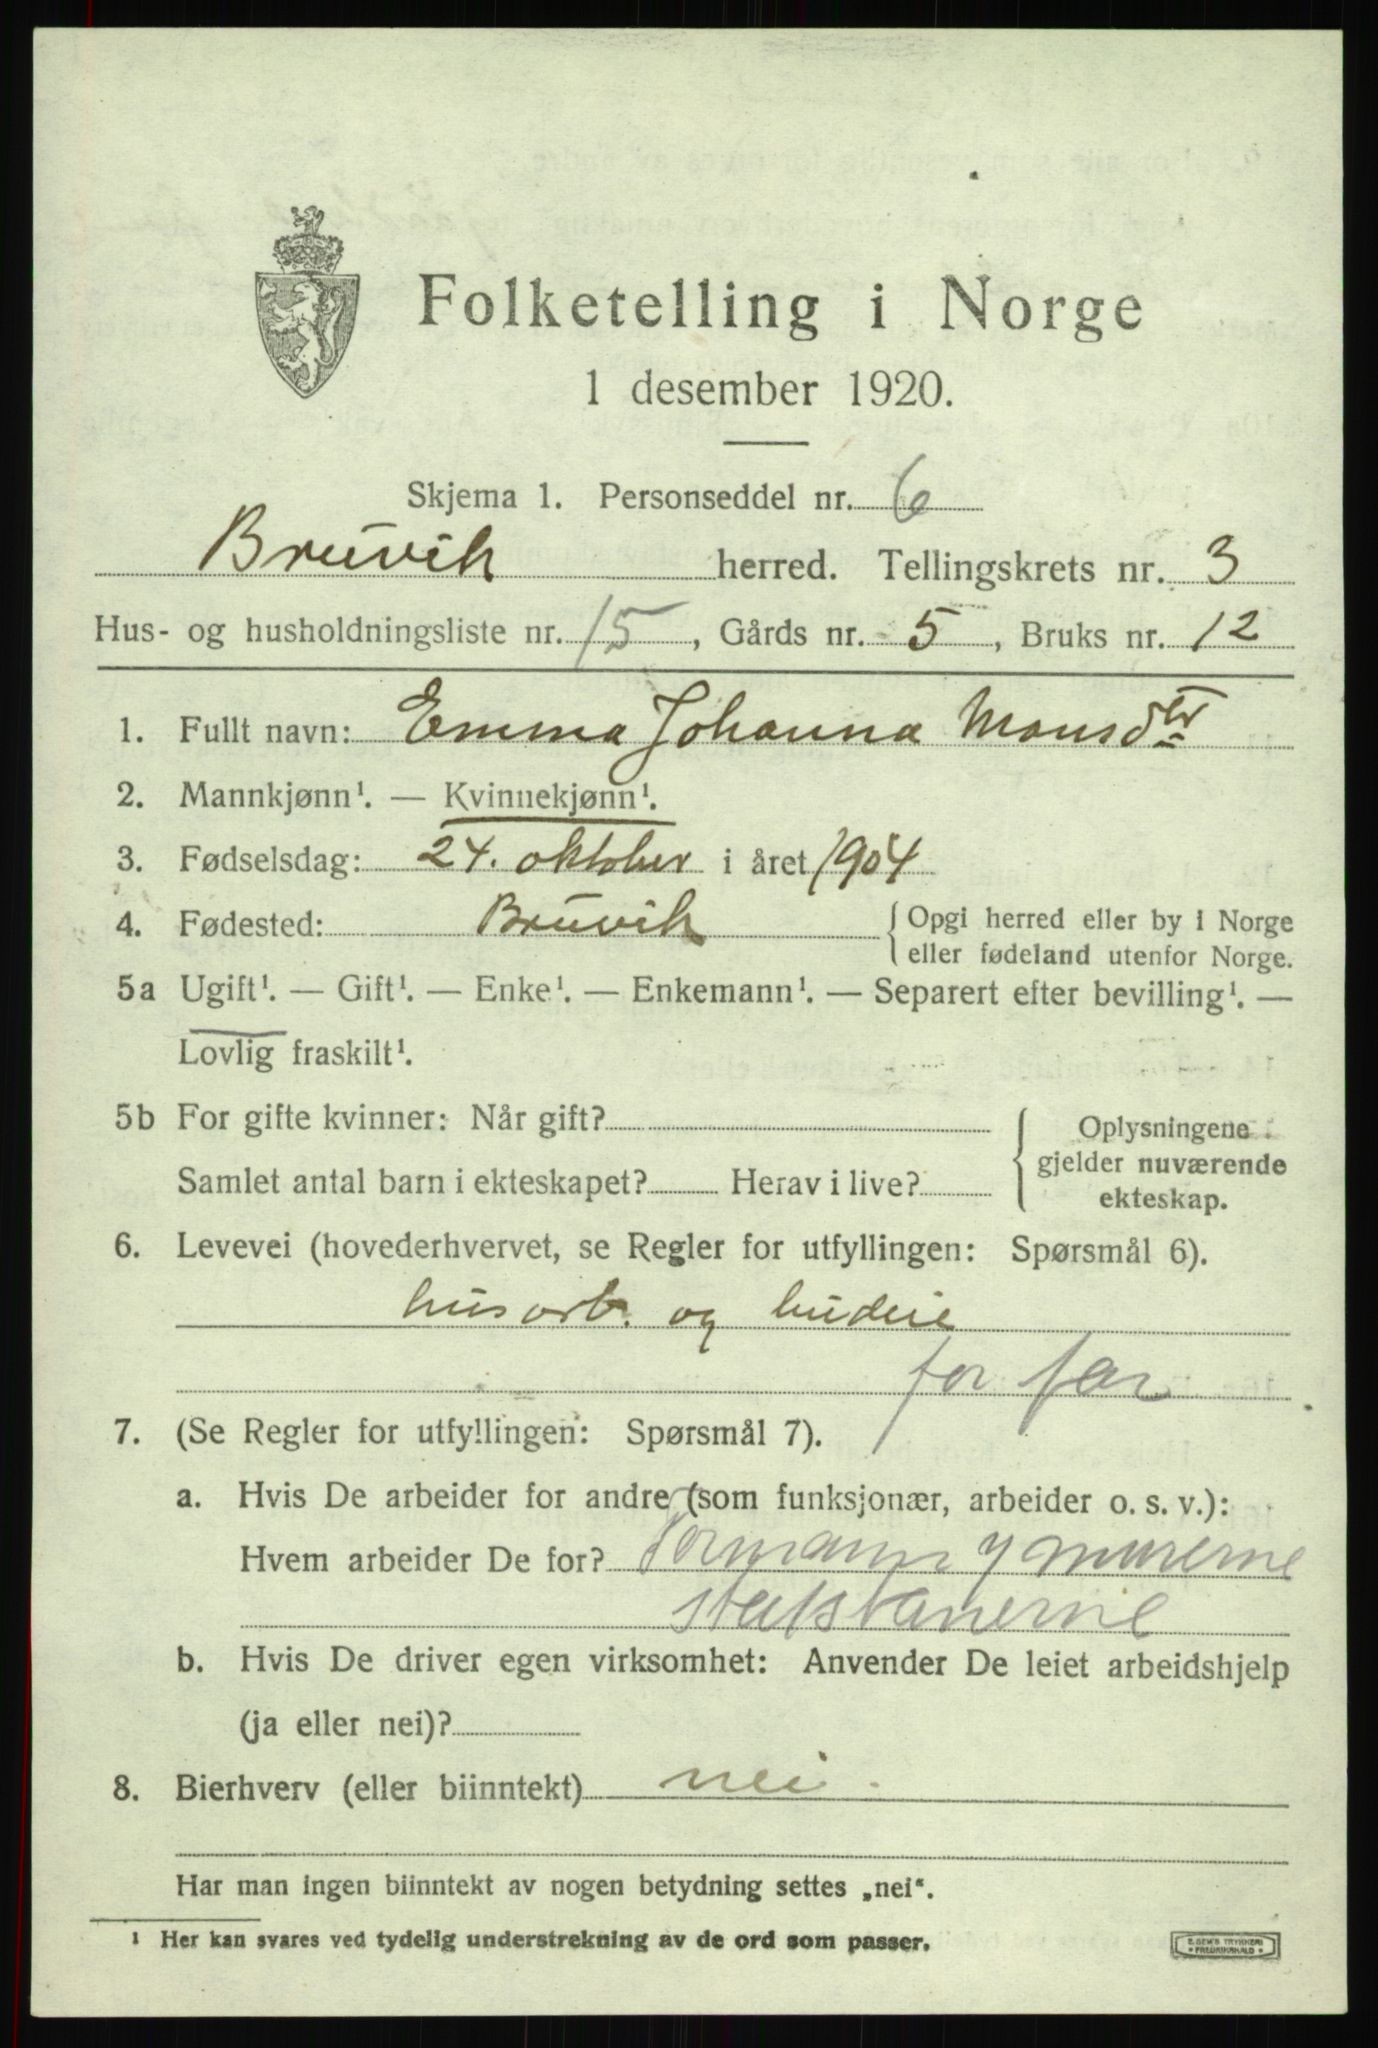 Folketelling i Norge
1 desember 1920.
Skjema 1. Personseddel nr. 6
Bruvik herred. Tellingskrets nr. 3
Hus- og husholdningsliste nr. 15, Gårds nr. 5, Bruks nr. 12
1. Fullt navn: Emma Johanna Monsdtr
2. Mannkjønn¹. — Kvinnekjønn¹.
3. Fødselsdag: 24. oktober i året 1904
4. Fødested: Bruvik {Opgi herred eller by i Norge
eller fødeland utenfor Norge.
5a Ugift¹. — Gift¹. — Enke¹. — Enkemann¹. — Separert efter bevilling¹. —
Lovlig fraskilt¹.
5b For gifte kvinner: Når gift?
Samlet antal barn i ekteskapet? Herav i live?
Oplysningene
gjelder nuværende
ekteskap.
6. Levevei (hovederhvervet, se Regler for utfyllingen: Spørsmål 6).
husarb. og budeie
for far
7. (Se Regler for utfyllingen: Spørsmål 7).
a. Hvis De arbeider for andre (som funksjonær, arbeider o. s. v.):
Hvem arbeider De for? Formann murerne
b. Hvis De driver egen virksomhet: Anvender De leiet arbeidshjelp
(ja eller nei)?
8. Bierhverv (eller biinntekt) nei.
Har man ingen biinntekt av nogen betydning settes „nei“.
¹ Her kan svares ved tydelig understrekning av de ord som passer.
E. SEM'S TRYKKERI
FREDRIKSHALD